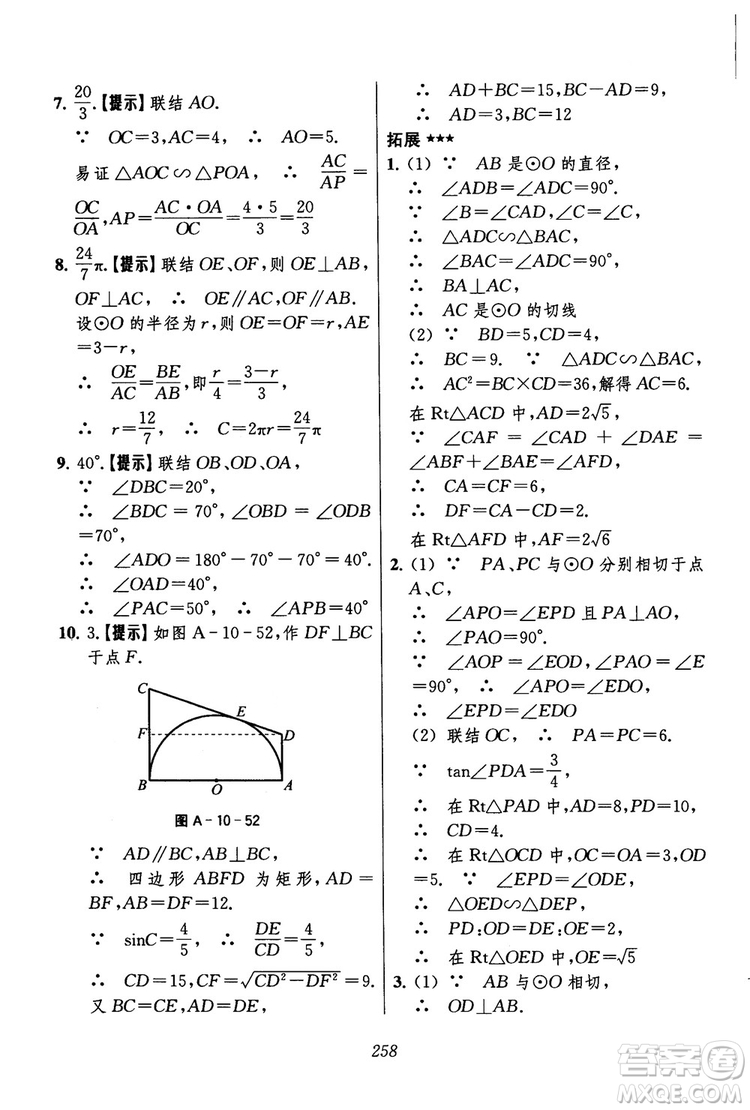 7. 20/3.【提示】联结 AO.
∵ OC=3,AC=4, ∴ AO=5.
易证△AOC∽△POA, ∴ AC/AP=
OC/OA,AP=AC·OA/OC=4·5/3=20/3
8. 24/7π.【提示】联结 OE、OF,则 OE⊥AB,
OF⊥AC, ∴ OE∥AC,OF∥AB.
设⊙O 的半径为 r,则 OE=OF=r,AE
=3-r,
∴ OE/AC=BE/AB,即r/4=3-r/3,
∴ r=12/7, ∴ C=2πr=24/7π
9. 40°.【提示】联结 OB、OD、OA,
∵ ∠DBC=20°,
∴ ∠BDC = 70°,∠OBD = ∠ODB
=70°,
∴ ∠ADO=180°-70°-70°=40°.
∴ ∠OAD=40°.
∴ ∠PAC=50°, ∴ ∠APB=40°
10. 3.【提示】如图 A-10-52,作 DF⊥BC
于点 F.
C
E
F
D
B
O
A
图 A-10-52
∵ AD∥BC,AB⊥BC,
∴ 四边形 ABFD 为矩形,AD=
BF,AB=DF=12.
∵ sinC=4/5, ∴ DE/CD=4/5,
∴ CD=15,CF=√CD²-DF²=9.
又 BC=CE,AD=DE,
∴ AD+BC=15,BC-AD=9,
∴ AD=3,BC=12
拓展 ★★★
1. (1) ∵ AB 是⊙O 的直径,
∴ ∠ADB=∠ADC=90°.
∵ ∠B=∠CAD,∠C=∠C,
∴ △ADC∽△BAC,
∴ ∠BAC=∠ADC=90°,
∴ BA⊥AC,
∴ AC 是⊙O 的切线
(2) ∵ BD=5,CD=4,
∴ BC=9. ∵ △ADC∽△BAC,
∴ AC²=BC×CD=36,解得 AC=6.
在 Rt△ACD 中,AD=2√5,
∵ ∠CAF = ∠CAD + ∠DAE =
∠ABF+∠BAE=∠AFD,
∴ CA=CF=6,
∴ DF=CA-CD=2.
在 Rt△AFD 中,AF=2√6
2. (1) ∵ PA、PC 与⊙O 分别相切于点
A、C,
∴ ∠APO=∠EPD 且 PA⊥AO,
∴ ∠PAO=90°.
∵ ∠AOP=∠EOD,∠PAO=∠E
=90°, ∴ ∠APO=∠EDO,
∴ ∠EPD=∠EDO
(2) 联结 OC, ∴ PA=PC=6.
∵ tan∠PDA=3/4,
∴ 在 Rt△PAD 中,AD=8,PD=10,
∴ CD=4.
∴ 在 Rt△OCD 中,OC=OA=3,OD
=5. ∵ ∠EPD=∠ODE,
∴ △OED∽△DEP,
∴ PD:OD=DE:OE=2,
∴ 在 Rt△OED 中,OE=√5
3. (1) ∵ AB 与⊙O 相切,
∴ OD⊥AB.
258
答案圈
MXQE.COM